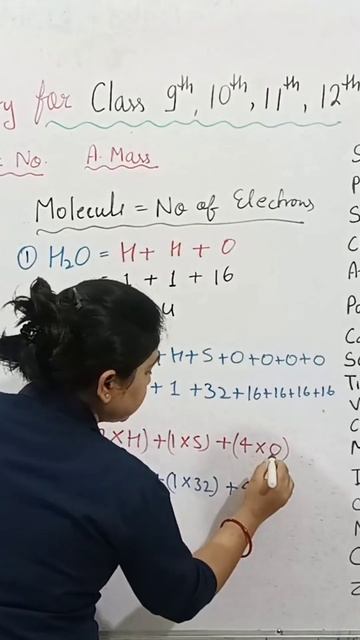 ry for Class 9th, 10th, 11th, 12th
No. A. Mass
Molecule = No of Electrons
① H2O = H + H + O
= 1 + 1 + 16
u
+ H + S + O + O + O + O
+ 1 + 32 + 16 + 16 + 16 + 16
× H) + (1 × S) + (4 × O)
+ (1 × 32) +
S
P
S
C
A
Po
Ca
Sc
Ti
V
C
M
I
C
N
C
Z